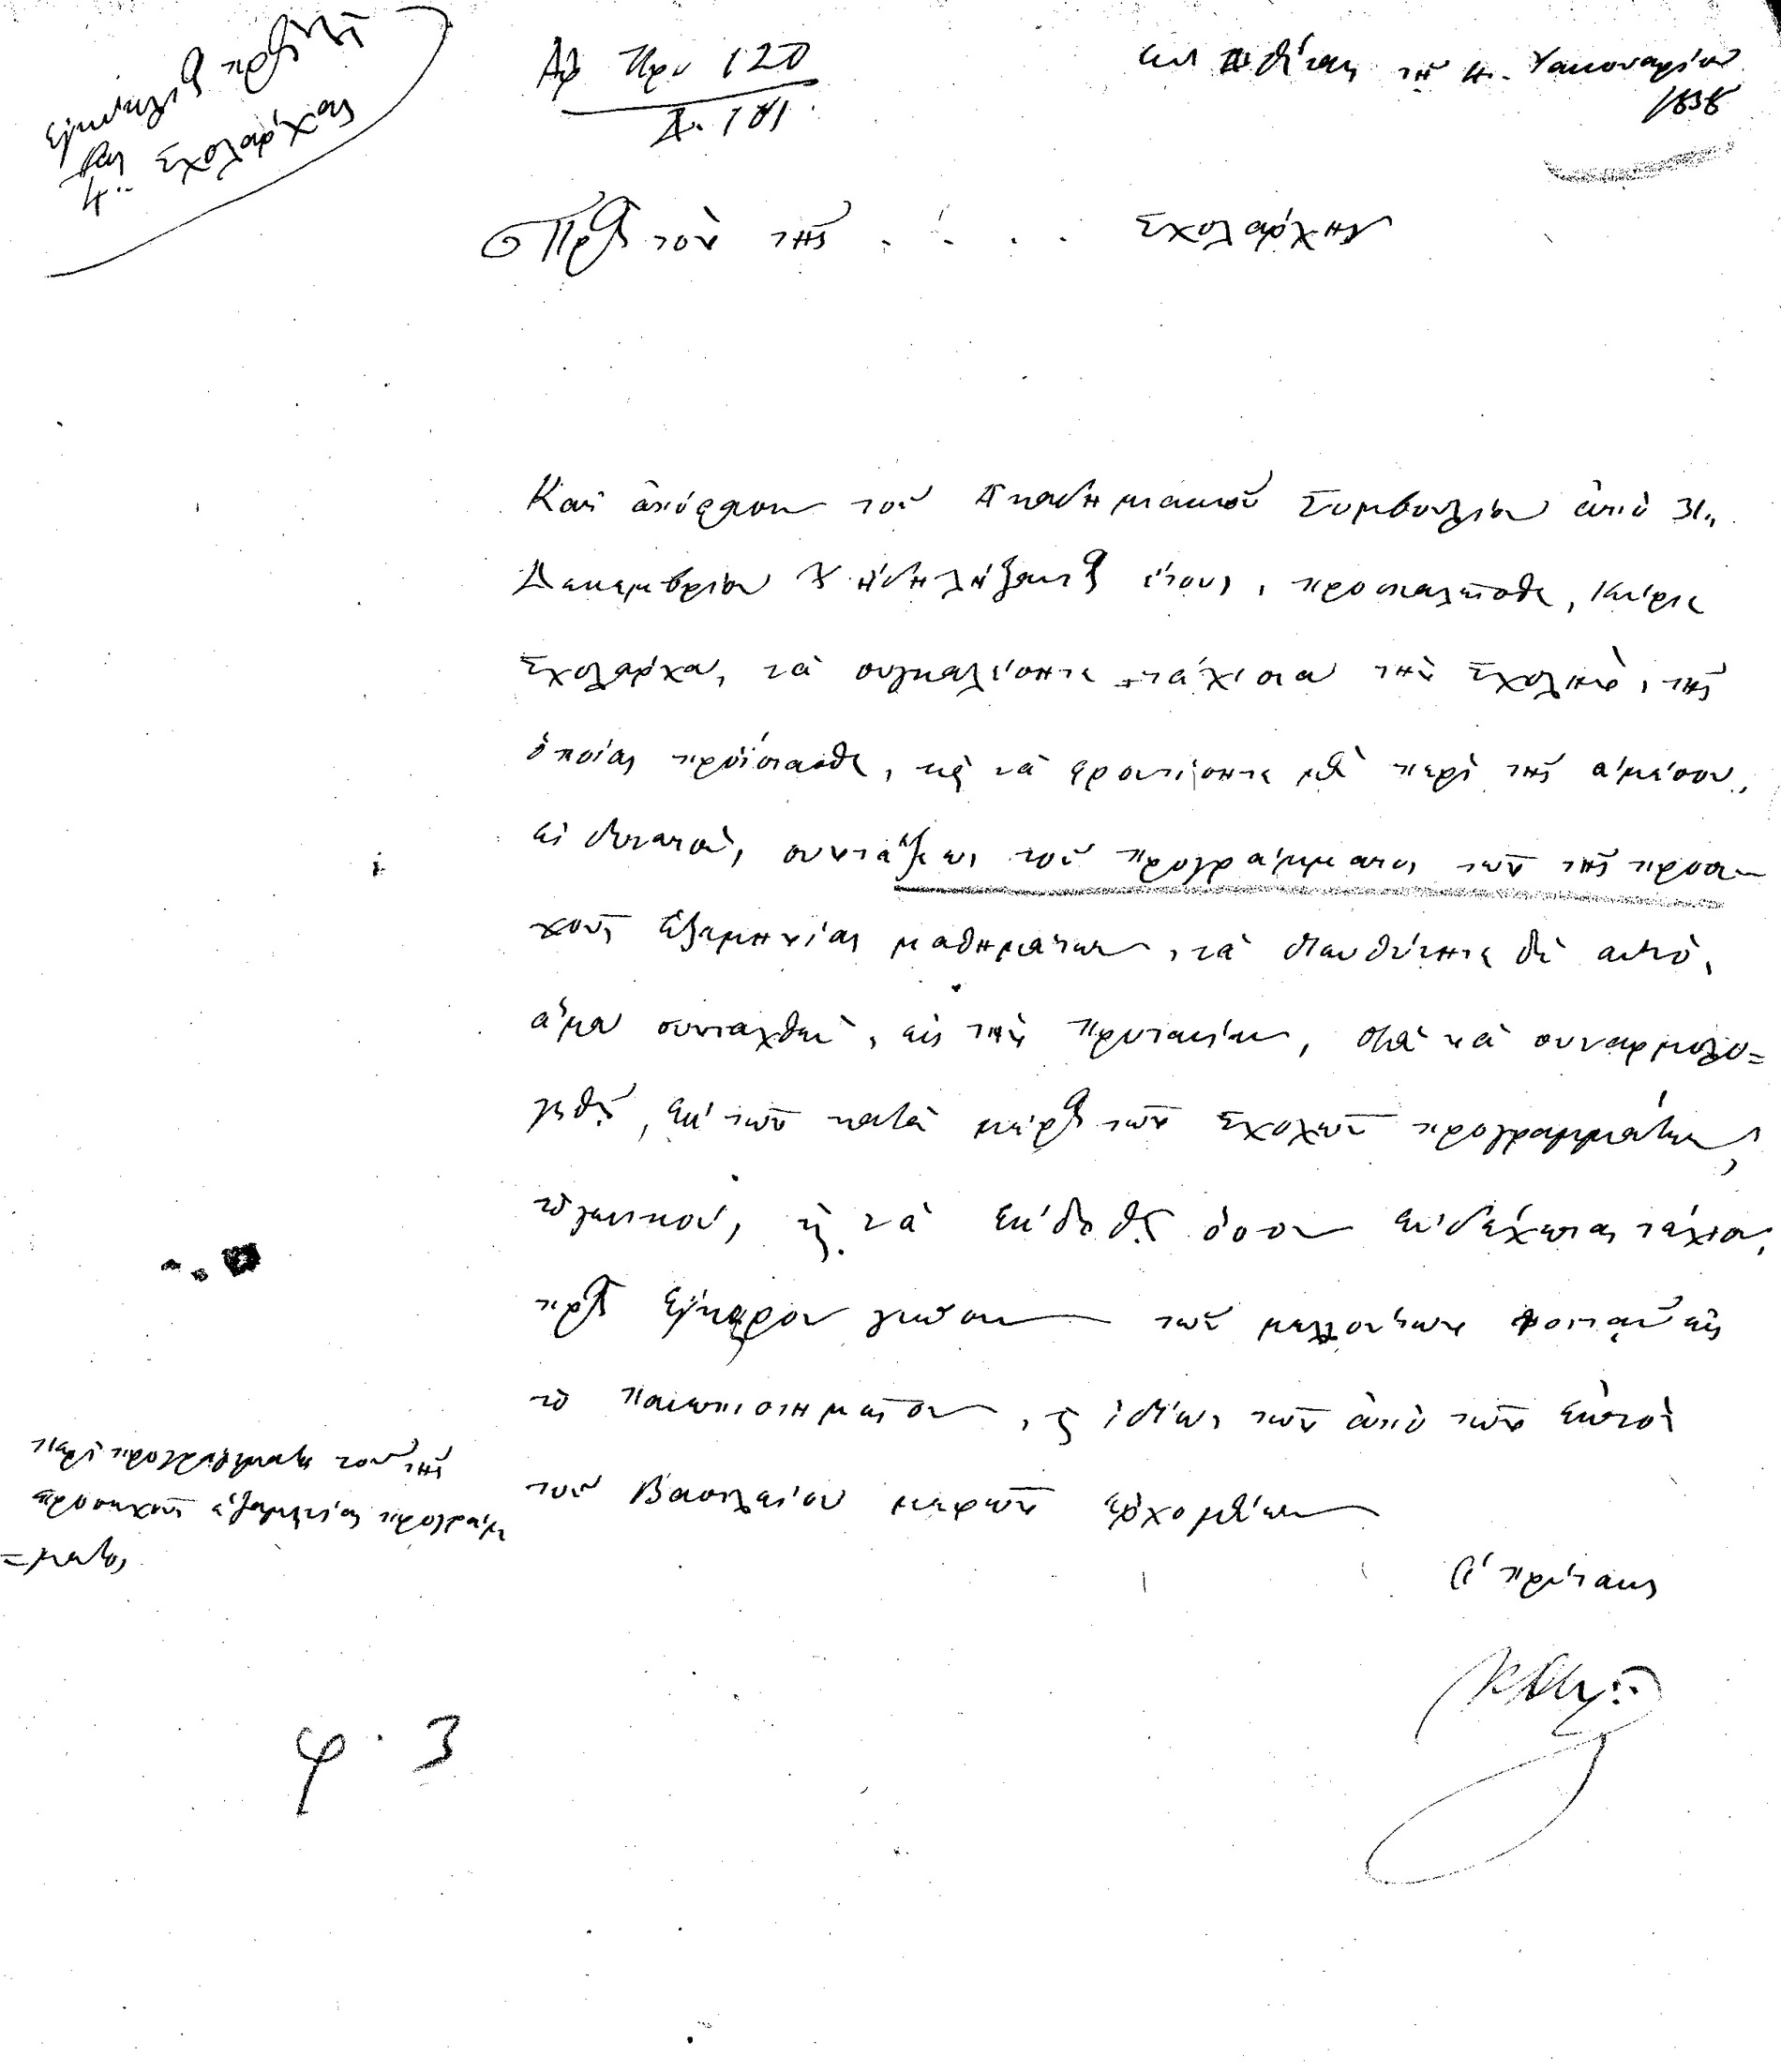 Ἐγκύκλιος πρὸς τοὺς
4 Σχολάρχας
Ἀρ Πρω 120
Δ. 181.
Ἐν Ἀθήναις τῇ Ἰανουαρίου
1838
Πρὸς τὸν τῆς . . . . Σχολάρχην
Κατ' ἀπόφασιν τοῦ Ἀκαδημιακοῦ Συμβουλίου ἀπὸ 31
Δεκεμβρίου τοῦ ἤδη λήξαντος ἔτους, προσκαλεῖσθε, Κύριε
Σχολάρχα, νὰ συγκαλέσητε τάχιστα τὴν Σχολὴν, τῆς
ὁποίας προΐστασθε, καὶ νὰ φροντίσητε περὶ τῆς ἀμέσου,
εἰ δυνατὸν, συντάξεως τοῦ προγράμματος τῶν τῆς προσε-
χοῦς ἑξαμηνίας μαθημάτων, νὰ διευθύνητε δὲ αὐτὸ,
ἅμα συνταχθὲν, εἰς τὴν Πρυτανείαν, διὰ νὰ συναρμολο=
γηθῇ, ἐκ τῶν κατὰ μέρος τῶν Σχολῶν προγραμμάτων,
τὸ γενικὸν, καὶ νὰ ἐκδοθῇ ὅσον ἐνδέχεται τάχιον,
πρὸς ἔγκαιρον γνῶσιν τῶν μελλόντων φοιτᾶν εἰς
τὸ Πανεπιστημεῖον, καὶ ἰδίως τῶν ἀπὸ τῶν ἐκτὸς
τοῦ Βασιλείου μερῶν ἐρχομένων
Ὁ πρύτανις
περὶ τοῦ τῆς
προσεχοῦς ἑξαμηνίας προγράμ
=ματος
φ. 3